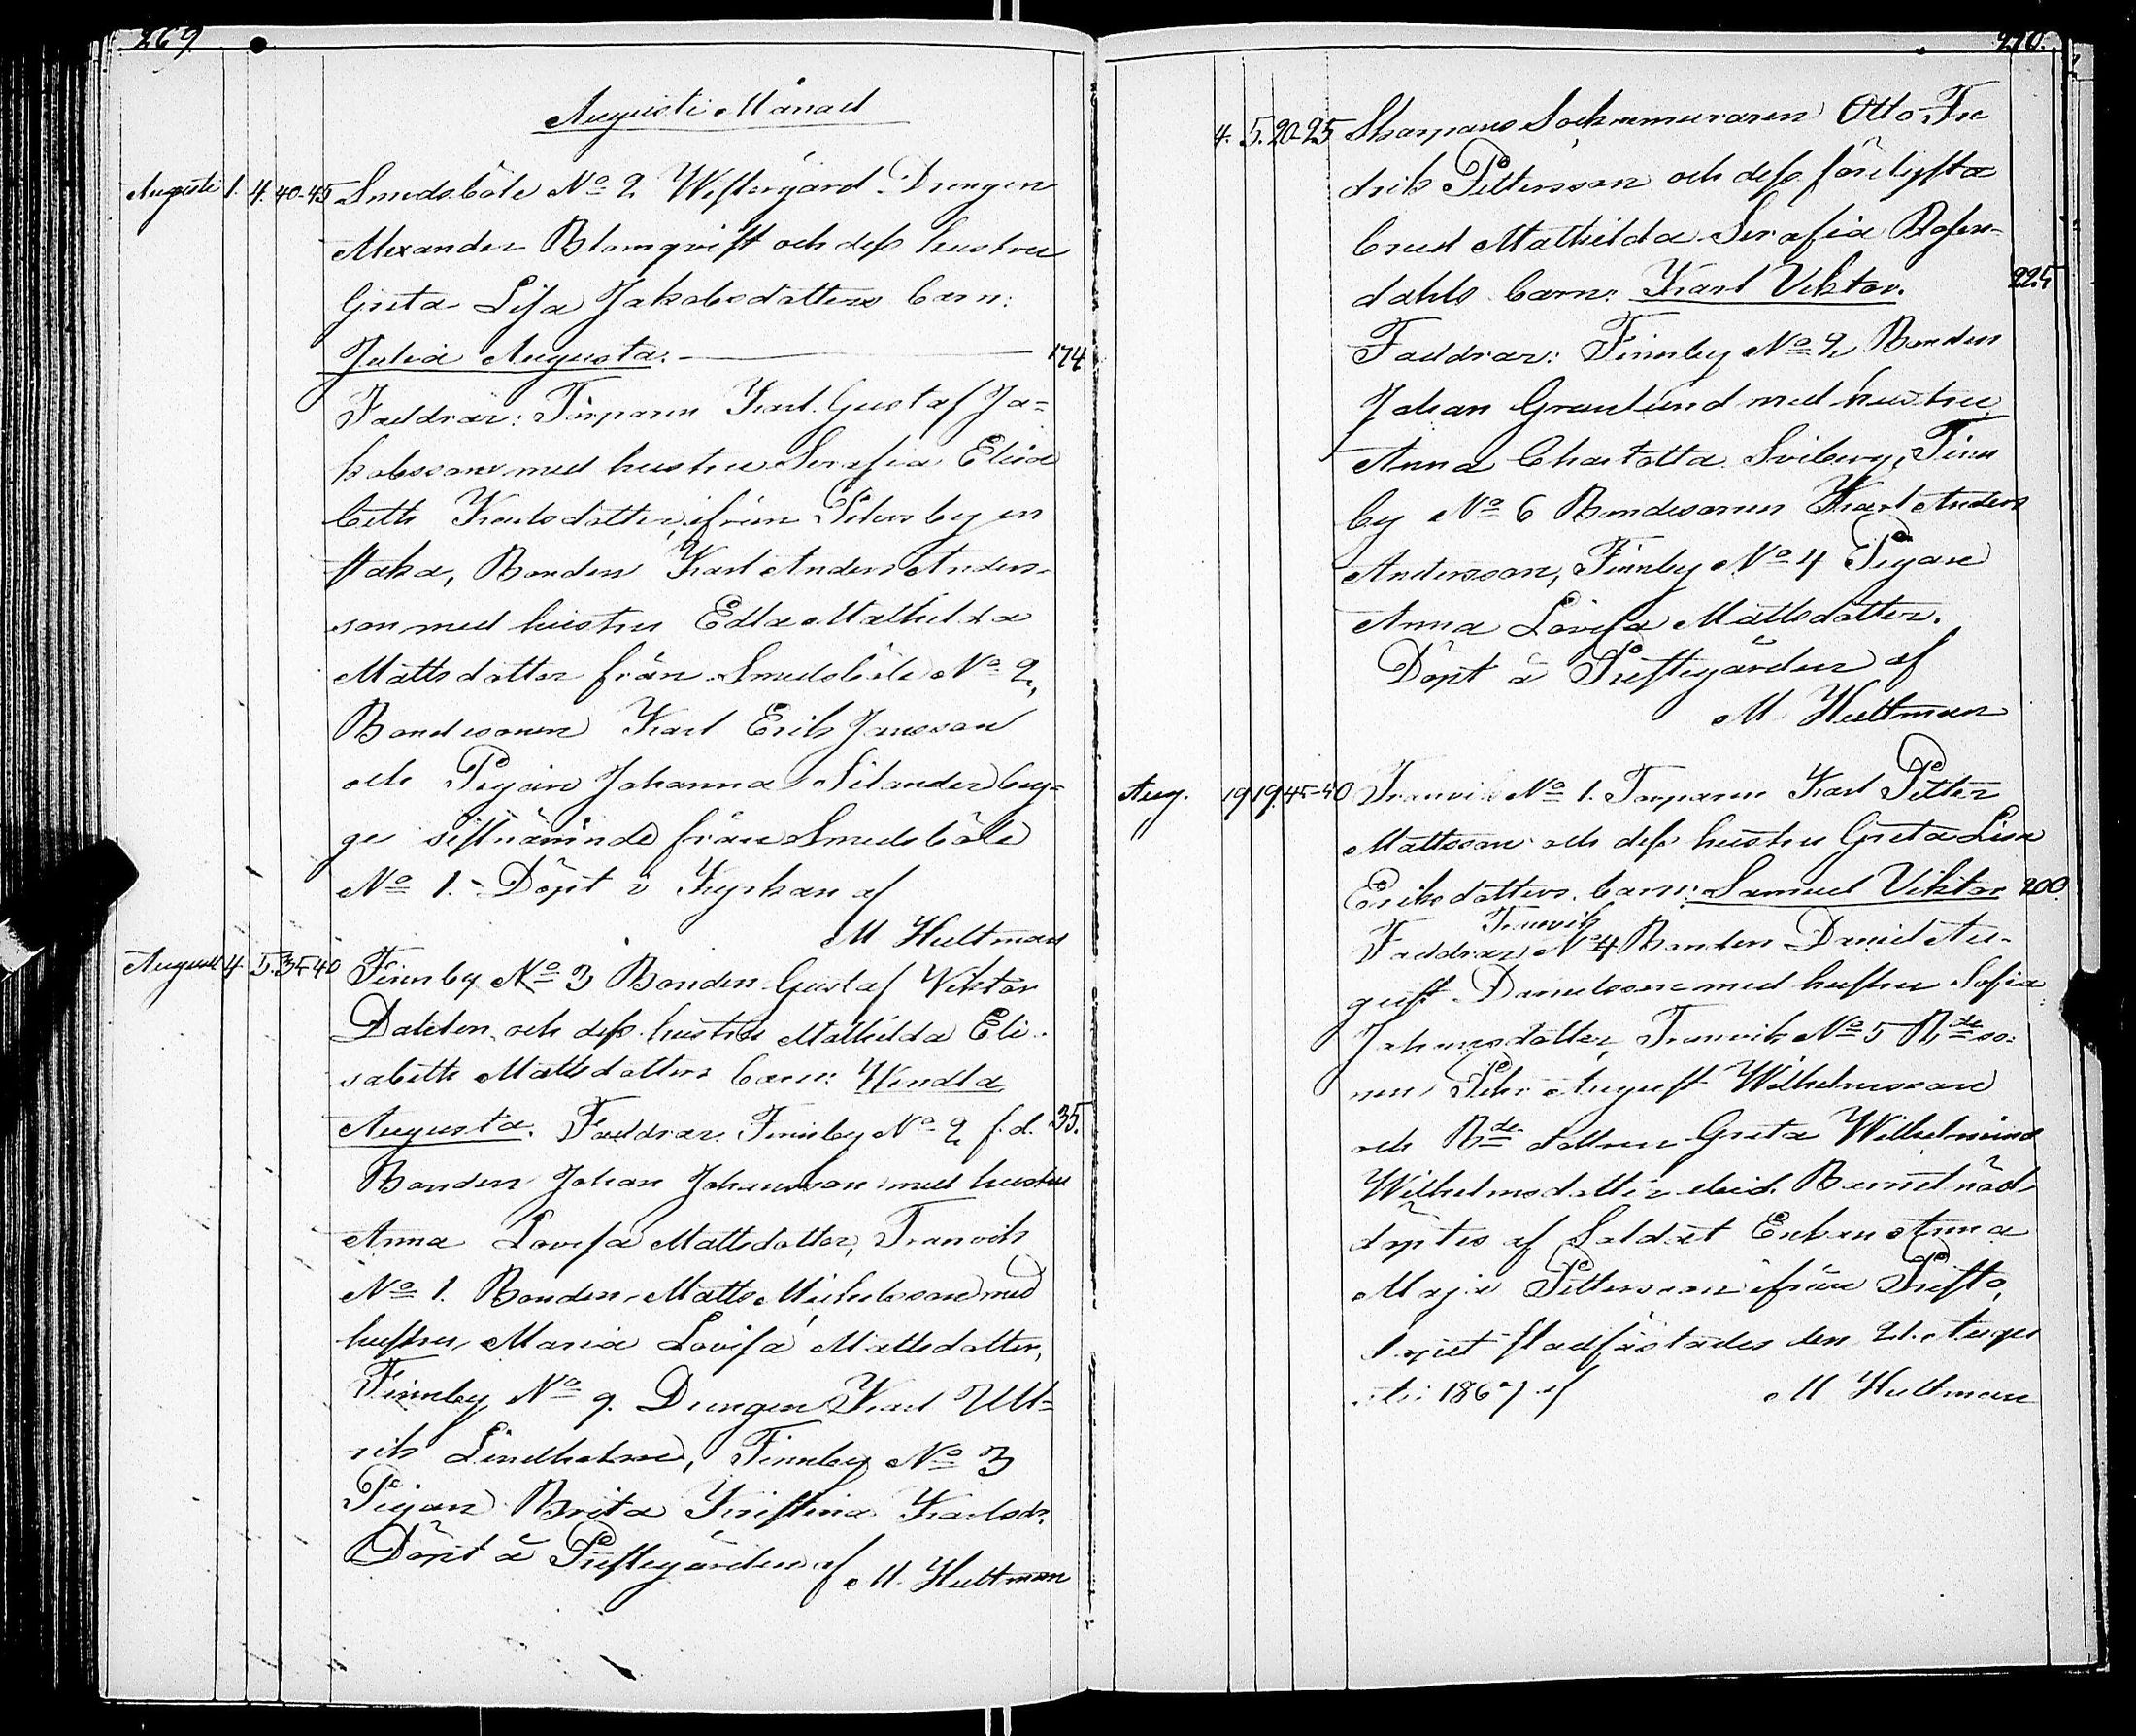 269.
Augusti Månad
Augusti 1. 4. 40-45 Smedsböle No 2 Westergård Drengen
Alexander Blomqvist och dess hustru
Greta Lisa Jakobsdotters barn:
Julia Augusta. 174
Faddrar: Torparen Karl Gustaf Ja-
kobsson med hustru Serafia Elisa
beth Karlsdotter, ifrån
Bonden Karl Anders Anders-
son med hustru Edla Mathilda
Mattsdotter från Smedsböle No 2,
Bondesonen Karl Erik Jansson
och Pigan Johanna Silander bey-
ge sistnämnde från Smedsböle
No 1. Döpt i Kyrkan af
M Hultman
Augusti 4. 5. 35-40 Finnby No 3 Bonden Gustaf Viktor
Dahlen och dess hustru Mathilda Eli-
sabeth Mattsdotters barn: Wendla
Augusta. Faddrar Finnby No 2 f.d. 35.
Bonden Johan Johansson med hustru
Anna Lovisa Mattsdotter, Tranvik
No 1. Bonden Matts Michelsson med
hustru Maria Lovisa Mattsdotter,
Finnby No 9. Drengen Karl Ull-
rik Lindholm, Finnby No 3
Pigan Brita Kristina Karlsdr.
Döpt å Prestegården af M. Hultman
270.
4. 5. 20-25 Skarpans Socknemuraren Otto Fre
drik Pettersson och dess förelysta
brud Mathilda Serafia Rosen-
dahls barn: Karl Viktor. 225
Faddrar: Finnby No 2 Bonden
Johan Granlund med hustru
Anna Charlotta Sviberg, Finn
by No 6 Bondesonen Karl Anders
Andersson, Finnby No 4 Pigan
Anna Lovisa Mattsdotter.
Döpt å Prestegården af
M. Hultman
Aug. 19 19 45-50 Tranvik No 1. Torparen Karl Petter
Mattsson och dess hustru Greta Lisa
Eriksdotters barn: Samuel Viktor 200
Tranvik
Faddrar No 4 Bonden Daniel Au-
gust Danielsson med hustru Sofia
Johansdotter, Tranvik No 5 Bde so-
nen Pehr August Wilhelmsson
och Bde dottren Greta Wilhelmina
Wilhelmsdotter ibid. Barnet nöd-
döptes af Soldat Enkan Anna
Maja Pettersson ifrån Prestö,
dopet stadfästades den 21. Augu
sti 1867 af M Hultman